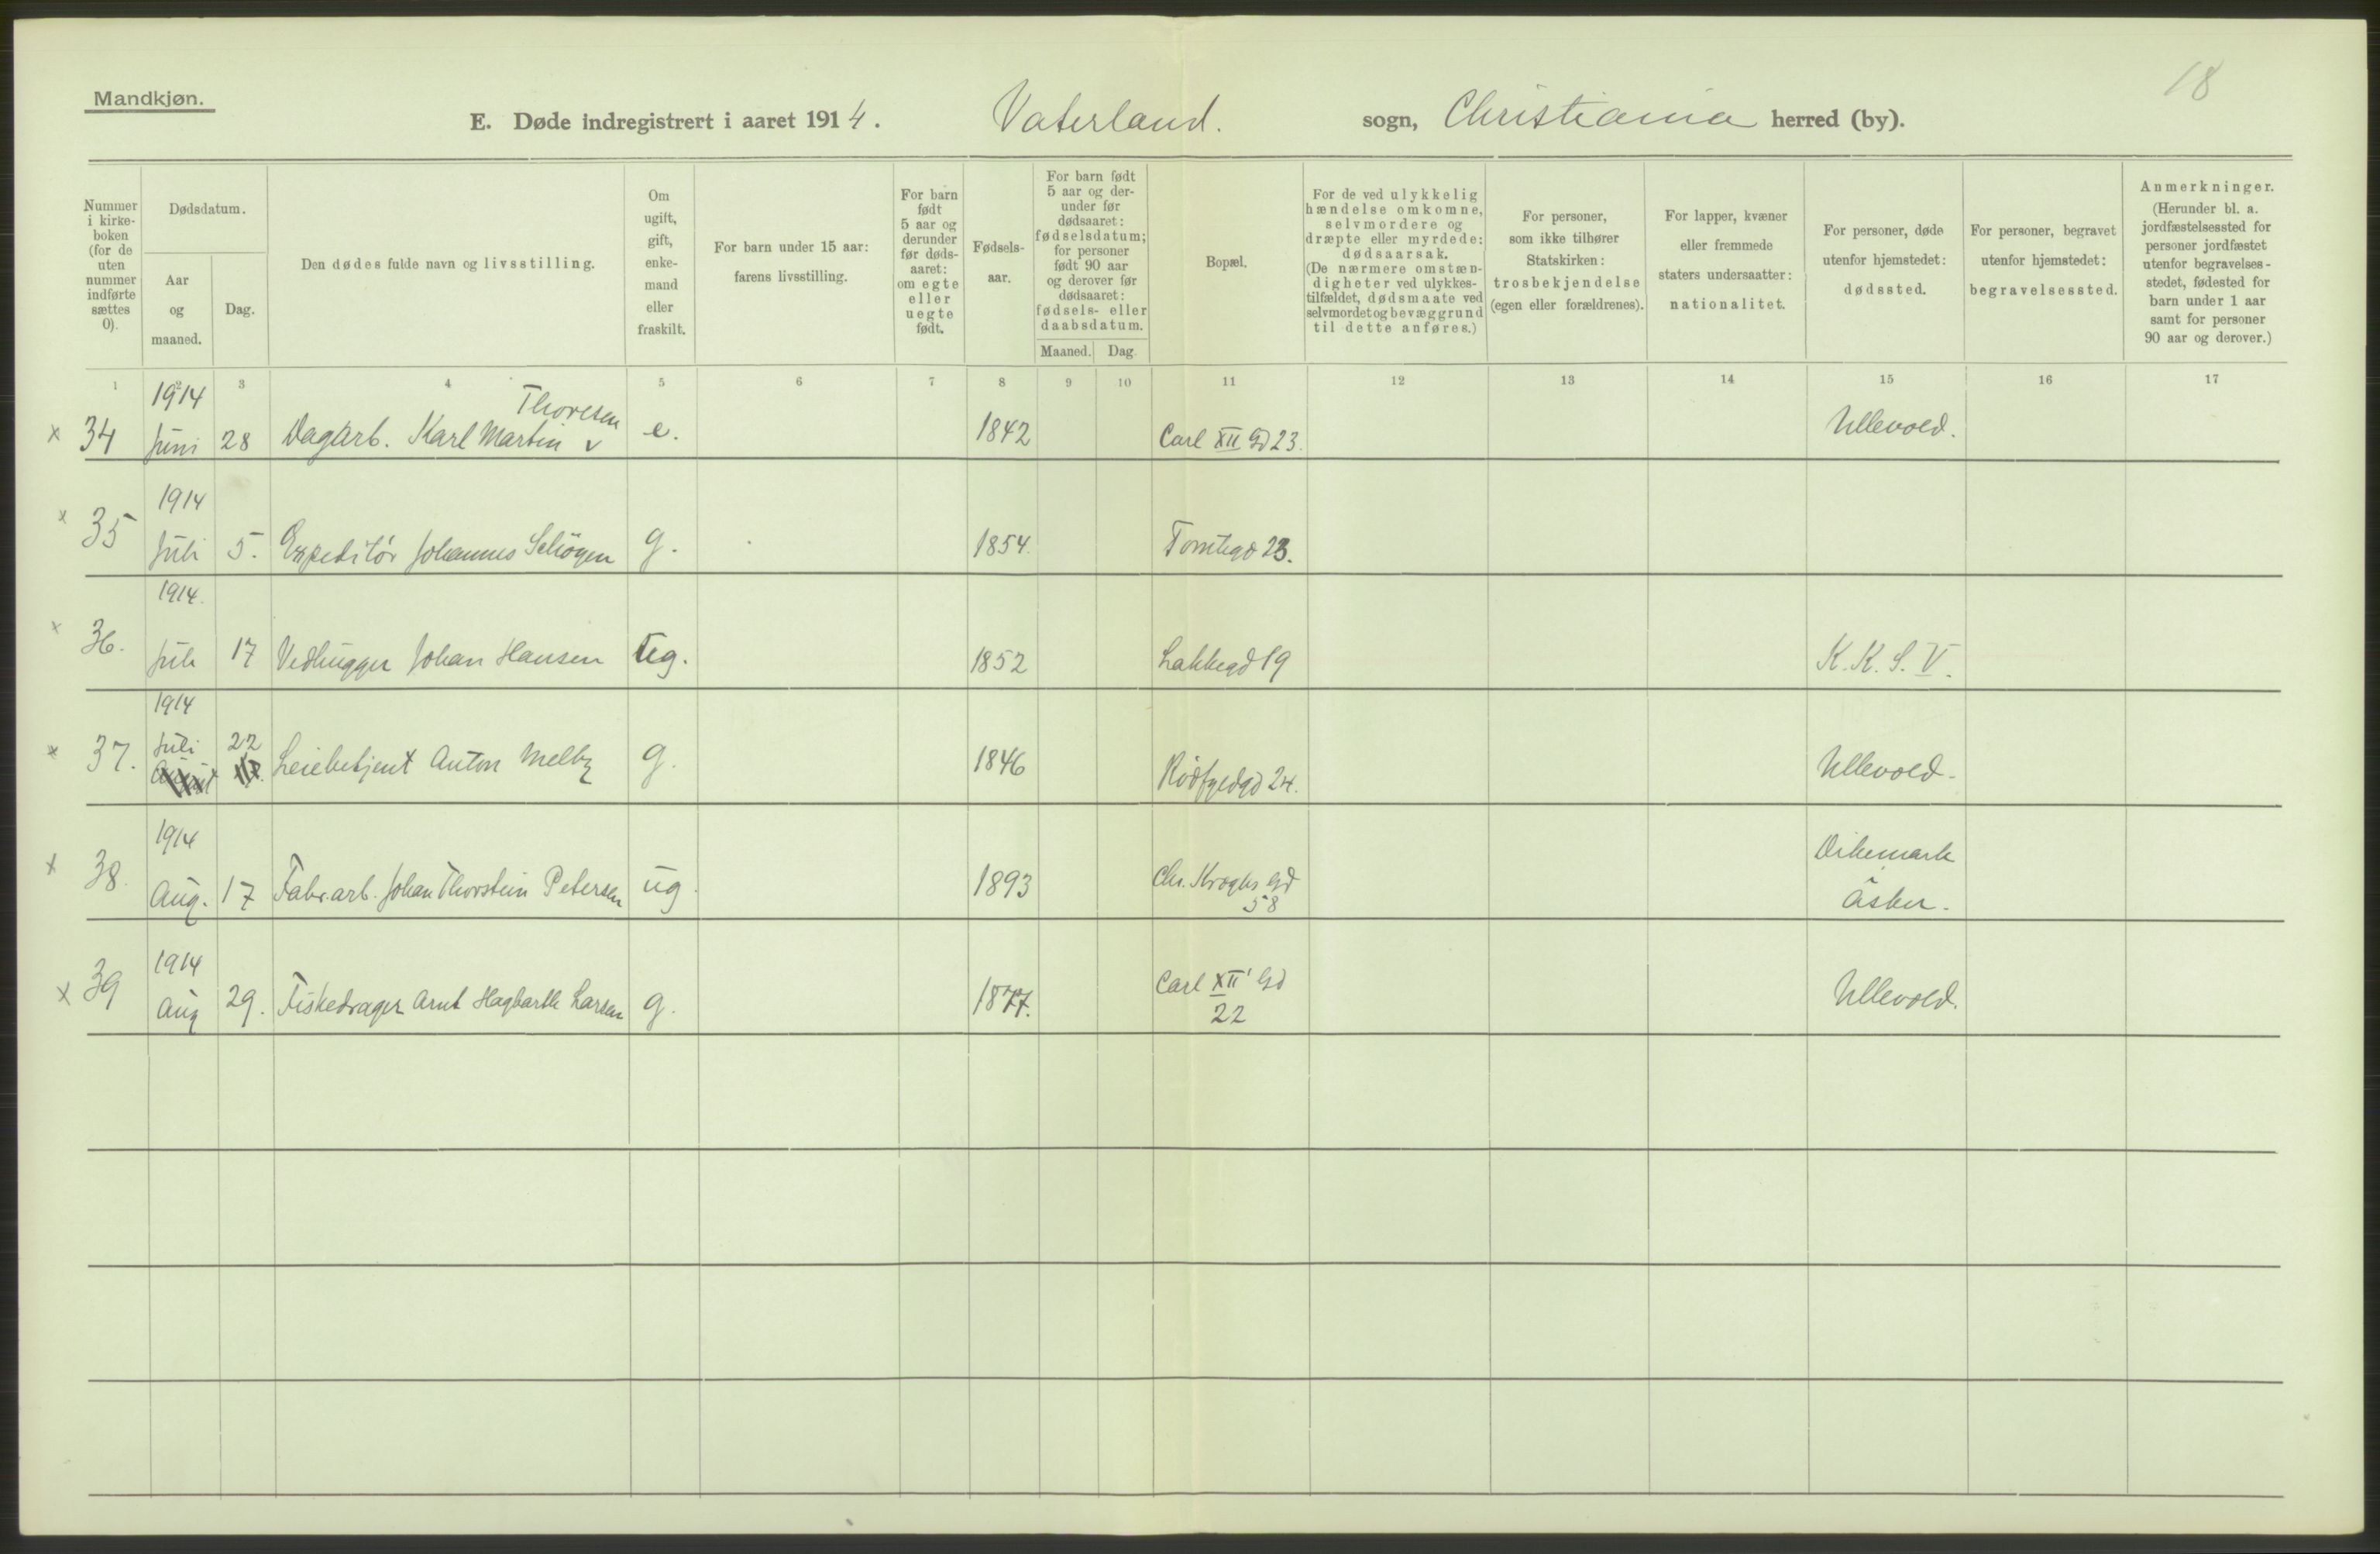 18
Mandkjøn.
E. Døde indregistrert i aaret 1914. Vaterland. sogn, Christiania herred (by).
Nummer i kirke-boken (for de uten nummer indførte sættes 0).
Dødsdatum.
Aar og maaned.
Dag.
Den dødes fulde navn og livsstilling.
Om ugift, gift, enke-mand eller fraskilt.
For barn under 15 aar: farens livsstilling.
For barn født 5 aar og derunder før døds-aaret: om egte eller uegte født.
Fødsels-aar.
For barn født 5 aar og der-under før dødsaaret: fødselsdatum; for personer født 90 aar og derover før dødsaaret: fødsels- eller daabsdatum.
Maaned. Dag.
Bopæl.
For de ved ulykkelig hændelse omkomne, selvmordere og dræpte eller myrdede: dødsaarsak. (De nærmere omstæn-digheter ved ulykkes-tilfældet, dødsmaate ved selvmordet og bevæggrund til dette anføres.)
For personer, som ikke tilhører Statskirken: trosbekjendelse (egen eller forældrenes).
For lapper, kvæner eller fremmede staters undersaatter: nationalitet.
For personer, døde utenfor hjemstedet: dødssted.
For personer, begravet utenfor hjemstedet: begravelsessted.
Anmerkninger. (Herunder bl. a. jordfæstelsessted for personer jordfæstet utenfor begravelses-stedet, fødested for barn under 1 aar samt for personer 90 aar og derover.)
1 2 3 4 5 6 7 8 9 10 11 12 13 14 15 16 17
x 34 1914 Juni 28 Dagarb. Karl Martin v Thoresen e. 1842 Carl XII Gd 23. Ullevold.
x 35 1914 Juli 5. Expeditör Johannes Schöyen g. 1854. Tomtegd 23.
x 36. 1914. Juli 17 Vedhugger Johan Hansen ug. 1852 Lakkegd 19 K. K. S. V.
x 37. 1914 Juli 22 Leiebetjent Anton Melby g. 1846 Rödfyldgd 24. Ullevold.
x 38. 1914 Aug. 17 Fabr.arb. Johan Thorstein Petersen ug. 1893 Chr. Kroghs Gd 58 Dikemark Asker.
x 39 1914 Aug 29. Fiskedrager Arnt Hagbarth Larsen g. 1877. Carl XII' Gd 22 Ullevold.